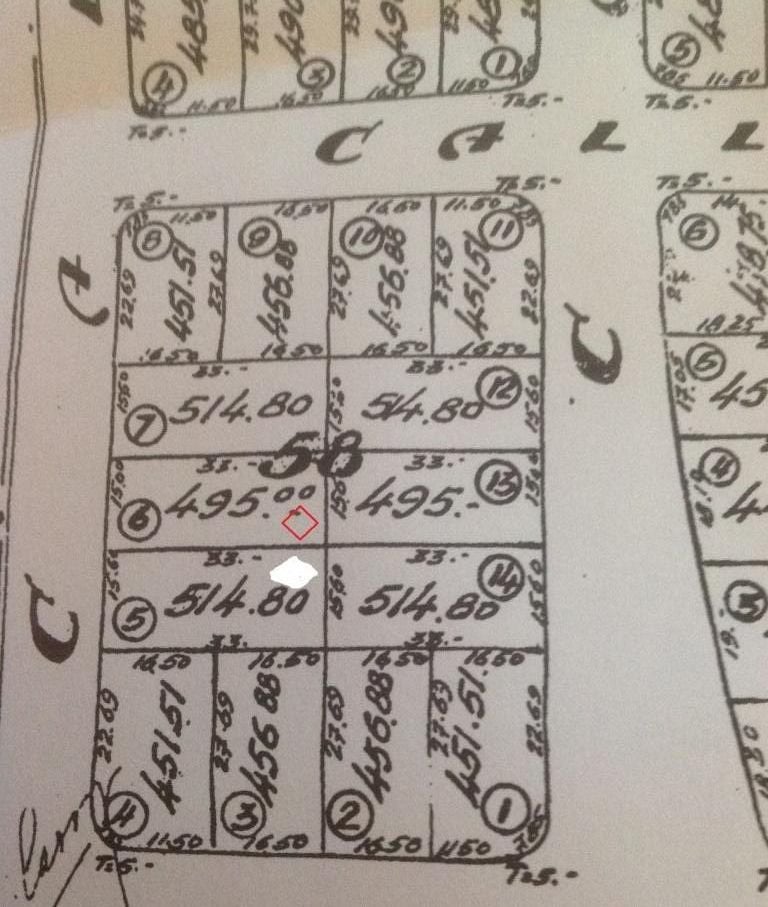 ④ ③ ② ① ⑤
11.50 16.50 16.50 11.50 11.50
T=5.- T=5.- T=5.-
C A L L
T=5.- T=5.- T=5.-
11.50 16.50 16.50 11.50 14
⑧ ⑨ ⑩ ⑪ ⑥
A
22.69 451.51 27.69 456.88 27.69 456.88 27.69 451.51 22.69
16.50 16.50 16.50 16.50 18.25
C
33.- 33.-
15.60 ⑦ 514.80 15.60 514.80 ⑫ 15.60 17.05 ⑤ 45
58
33.- 33.-
15.00 ⑥ 495.00 495.- ⑬ ④ 4
33.- 33.-
15.60 ⑤ 514.80 15.60 514.80 ⑭ 15.60 19.- ③
C
33.- 33.-
16.50 16.50 16.50 16.50
22.69 451.51 27.69 456.88 27.69 456.88 27.69 451.51. 22.69
④ ③ ② ①
11.50 16.50 16.50 11.50
T=5.- T=5.-